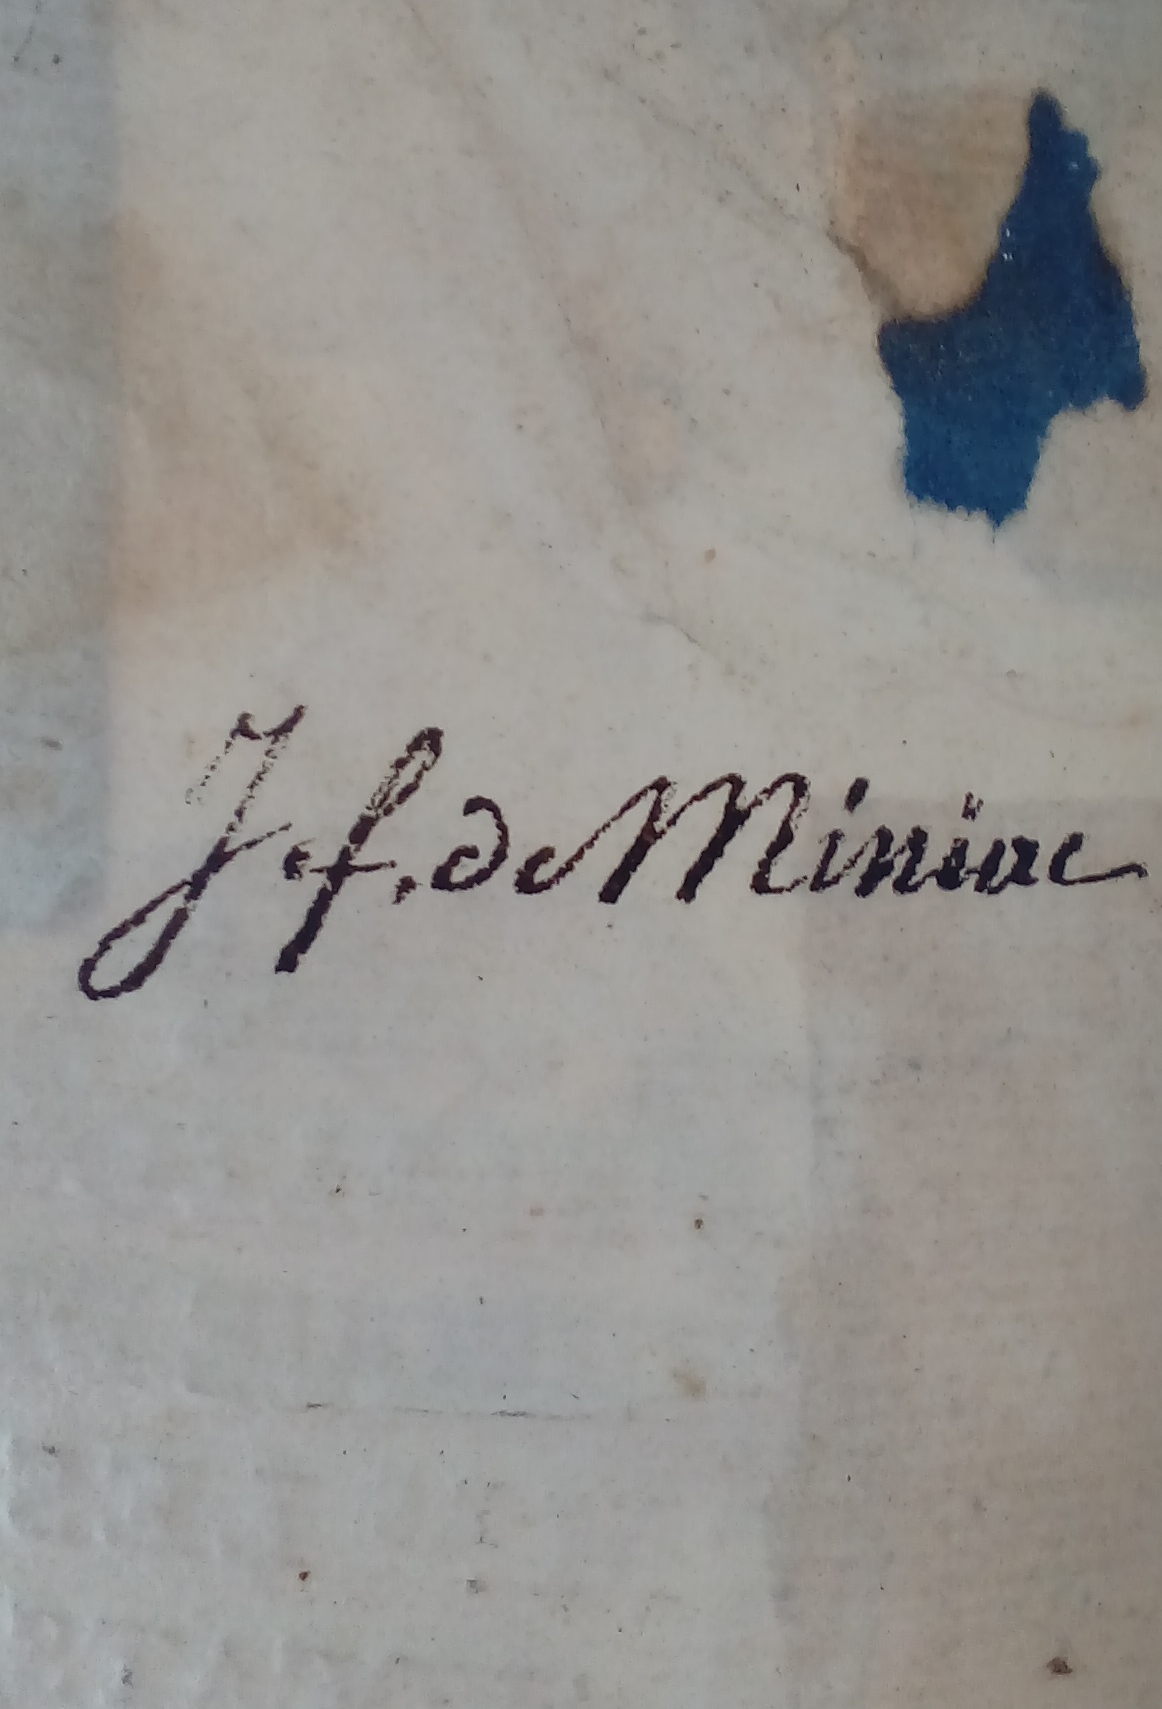 J. f. de Miniac